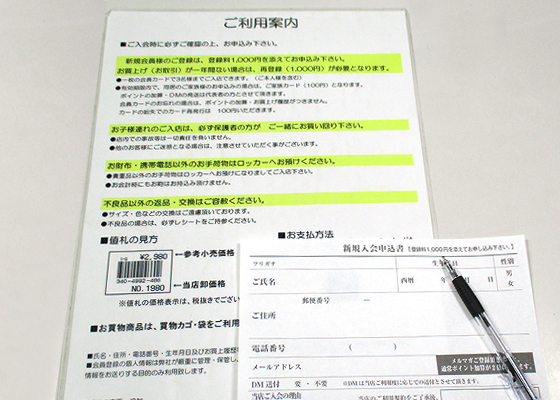 ご利用案内
■ご入会時に必ずご確認の上、お申込み下さい。
新規会員様のご登録は、登録料1,000円を添えてお申込み下さい。
お買上げ（お取引）が一年間ない場合は、再登録（1,000円）が必要となります。
●一枚の会員カードで3名様までご入店できます。（ご本人様を含む）
●有効期限内で、同居のご家族様のお申込みの場合は、ご家族カード（100円）となります。
ポイントの加算・DMの発送は代表者の方とさせて頂きます。
会員カードのお忘れの場合は、ポイントの加算・お買上げ履歴がつきません。
カードの紛失でのカード再発行は　100円いただきます。
お子様連れのご入店は、必ず保護者の方が　ご一緒にお買い回り下さい。
●店内での事故等は一切責任を負いません。
●他のお客様にご迷惑となる場合は、注意させていただく事がございます。
お財布・携帯電話以外のお手荷物はロッカーへお預けください。
●貴重品以外のお手荷物はロッカーへお預けになりましてご入店下さい。
●お会計時にもお鞄はお持込み頂けません。
不良品以外の返品・交換はご容赦ください。
●サイズ・色などの交換はご遠慮頂いております。
●不良品の場合は、必ずレシートをご持参ください。
■値札の見方
■お支払方法
¥2,980
←参考小売価格
340-4992-466
NO.1980
←当店卸価格
※値札の価格表示は、税抜きでござい
■お買物商品は、買物カゴ・袋をご利用
■氏名・住所・電話番号・生年月日及びお買上履歴
■会員登録の個人情報は弊社が厳重に管理・保管し
情報をお送りする目的のみ利用致します。
新規入会申込書
［登録料1,000円を添えてお申し込み下さい。］
フリガナ
性別
ご氏名
西暦
年
男
女
郵便番号
ー
ご住所
電話番号
（　　　）
メールアドレス
メルマガご登録
通常ポイント加算
DM送付
要 ・ 不要
※DMは当店ご利用度に応じての送付とさせて頂きます。
当店ご入会の理由
当店のご利用規約をご了承